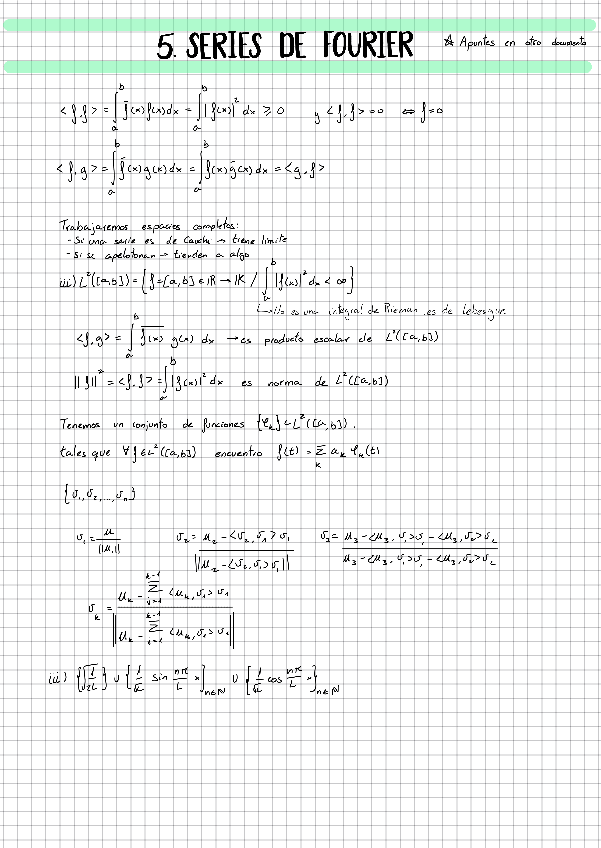 5. SERIES DE FOURIER ☆ Apuntes en otro documento
< f,f > = ∫_a^b f̄(x) f(x) dx = ∫_a^b |f(x)|² dx ≥ 0 y < f,f > = 0 ⇔ f=0
< f,g > = ∫_a^b f̄(x) g(x) dx = ∫_a^b f(x) ḡ(x) dx = < g,f >
Trabajaremos espacios completos:
- Si una serie es de Cauchi → tiene límite
- Si se apelotonan → tienden a algo
iii) L²([a,b]) = { f=[a,b] ∈ ℝ → 𝕂 / ∫_a^b |f(x)|² dx < ∞ }
↳ No es una integral de Rieman, es de Lebesgue
< f,g > = ∫_a^b \overline{f(x)} g(x) dx → es producto escalar de L²([a,b])
||f||² = < f,f > = ∫_a^b |f(x)|² dx es norma de L²([a,b])
Tenemos un conjunto de funciones {φ_k} ⊂ L²([a,b]),
tales que ∀ f ∈ L²([a,b]) encuentro f(t) = Σ_k a_k φ_k(t)
{ v₁, v₂, ..., v_n }
v₁ = u / ||u₁|| v₂ = (u₂ - <v₂, v₁> v₁) / ||u₂ - <v₂, v₁> v₁|| v₃ = (u₃ - <u₃, v₁> v₁ - <u₃, v₂> v₂) / (u₃ - <u₃, v₁> v₁ - <u₃, v₂> v₂)
v_k = (u_k - Σ_{j=1}^{k-1} <u_k, v₁> v₁) / ||u_k - Σ_{i=1}^{k-1} <u_k, v₁> v₁||
iii) { √(1/2L) } ∪ { 1/√L sin nπ/L x }_{n∈ℕ} ∪ { 1/√L cos nπ/L x }_{n∈ℕ}